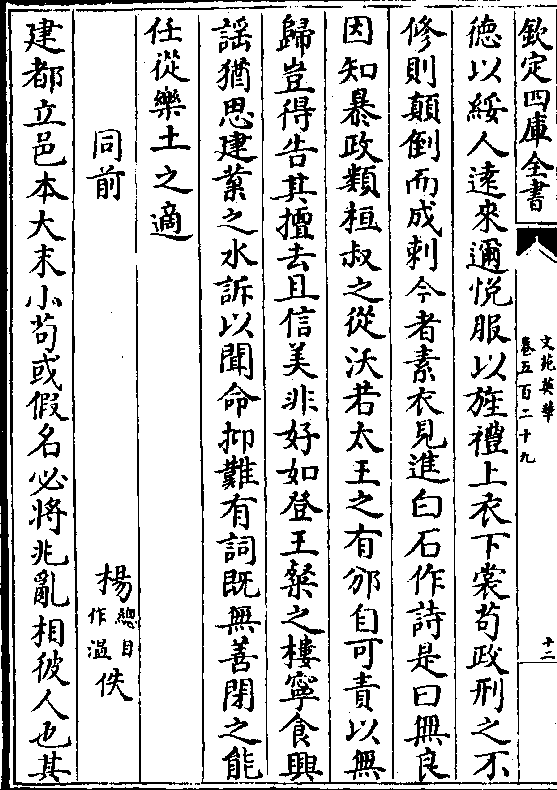 欽定四庫全書
文苑英華
卷五百二十九
十二
德以綏人逺來邇悦服以旌禮上衣下裳茍政刑之不
修則顛倒而成刺今者素衣見進白石作詩是曰無良
因知暴政類桓叔之從沃若太王之有邠自可責以無
歸豈得告其擅去且信美非好如登王粲之樓寧食興
謡猶思建鄴之水訴以聞命抑難有詞既無善閉之能
任從樂土之適
同前
楊總目作温佚
建都立邑本大末小茍或假名必將兆亂相彼人也其